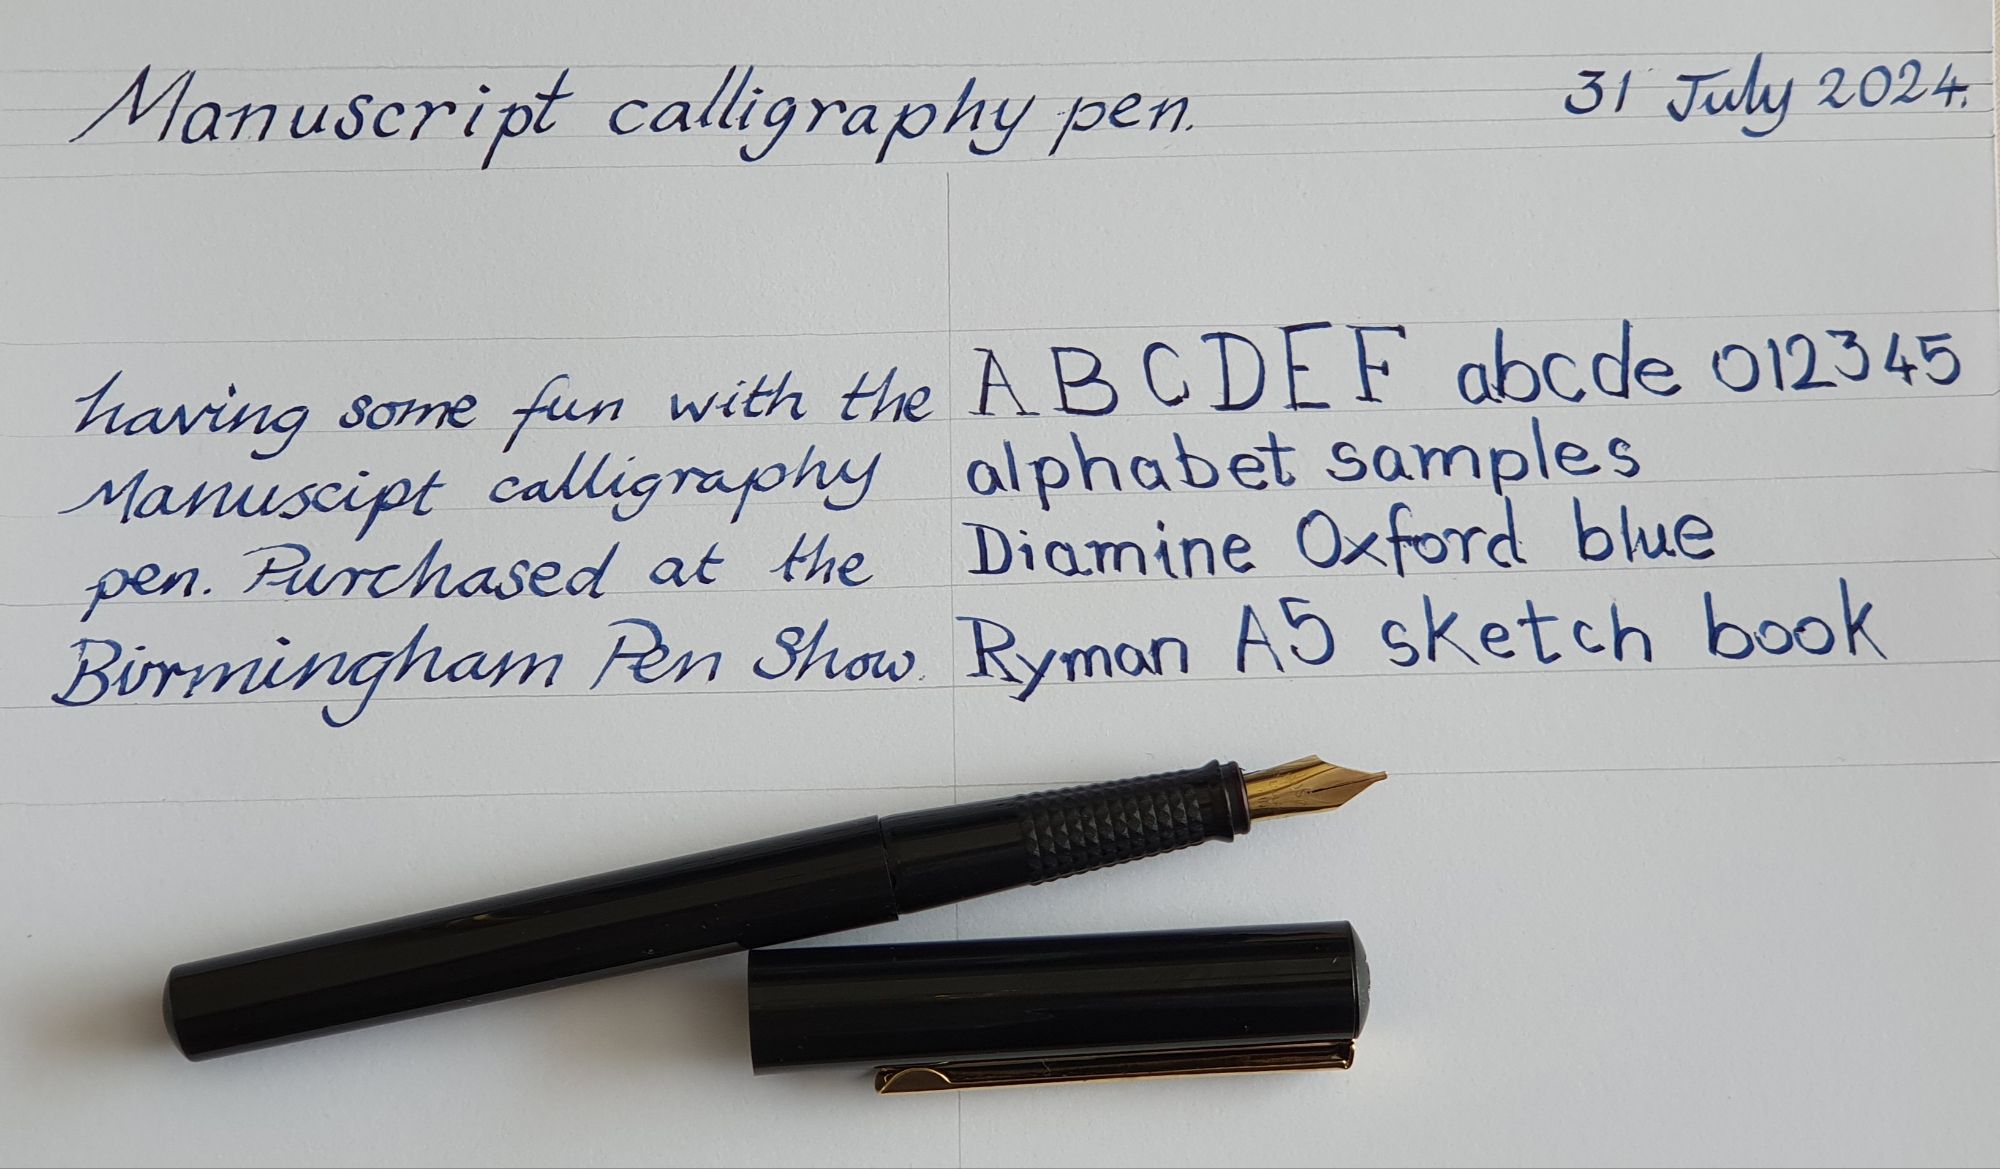 Manuscript calligraphy pen. 31 July 2024.
having some fun with the
Manuscipt calligraphy
pen. Purchased at the
Birmingham Pen Show.
A B C D E F abcde 012345
alphabet samples
Diamine Oxford blue
Ryman A5 sketch book